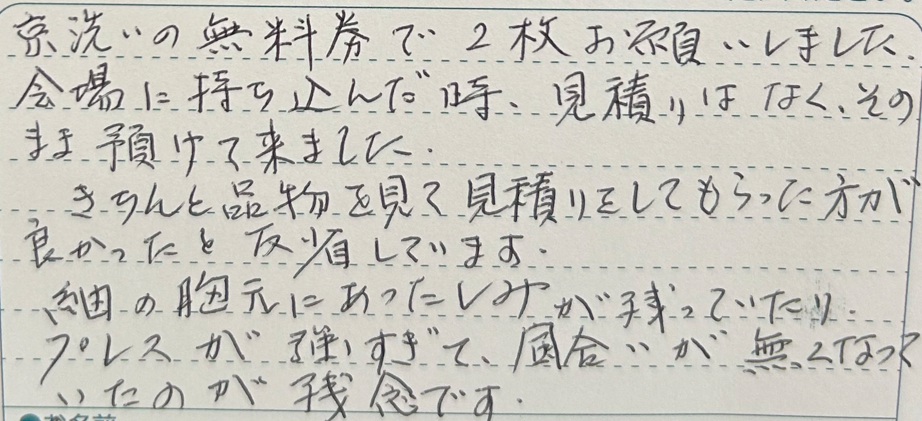 京洗いの無料券で2枚お願いしました.
会場に持ち込んだ時、見積りはなく、その
まま預けて来ました.
きちんと品物を見て見積りをしてもらった方が
良かったと反省しています.
紬の胸元にあったしみが残っていたり.
プレスが強いすぎて、風合いが無くなって
いたのが残念です.